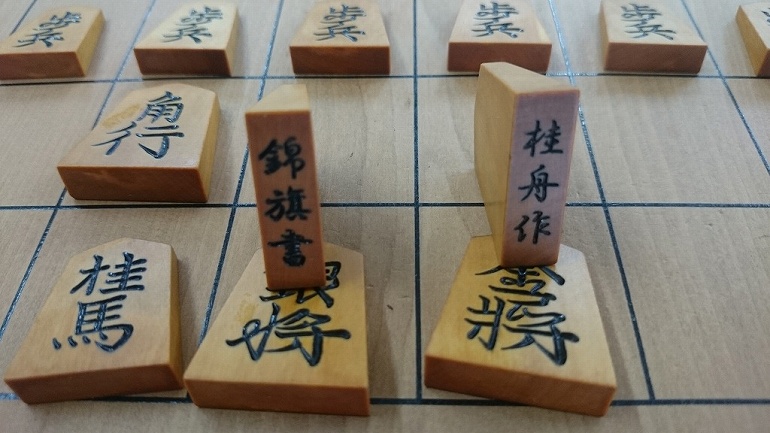 歩兵
歩兵
歩兵
歩兵
歩兵
角行
錦旗書
桂舟作
桂馬
銀将
金将